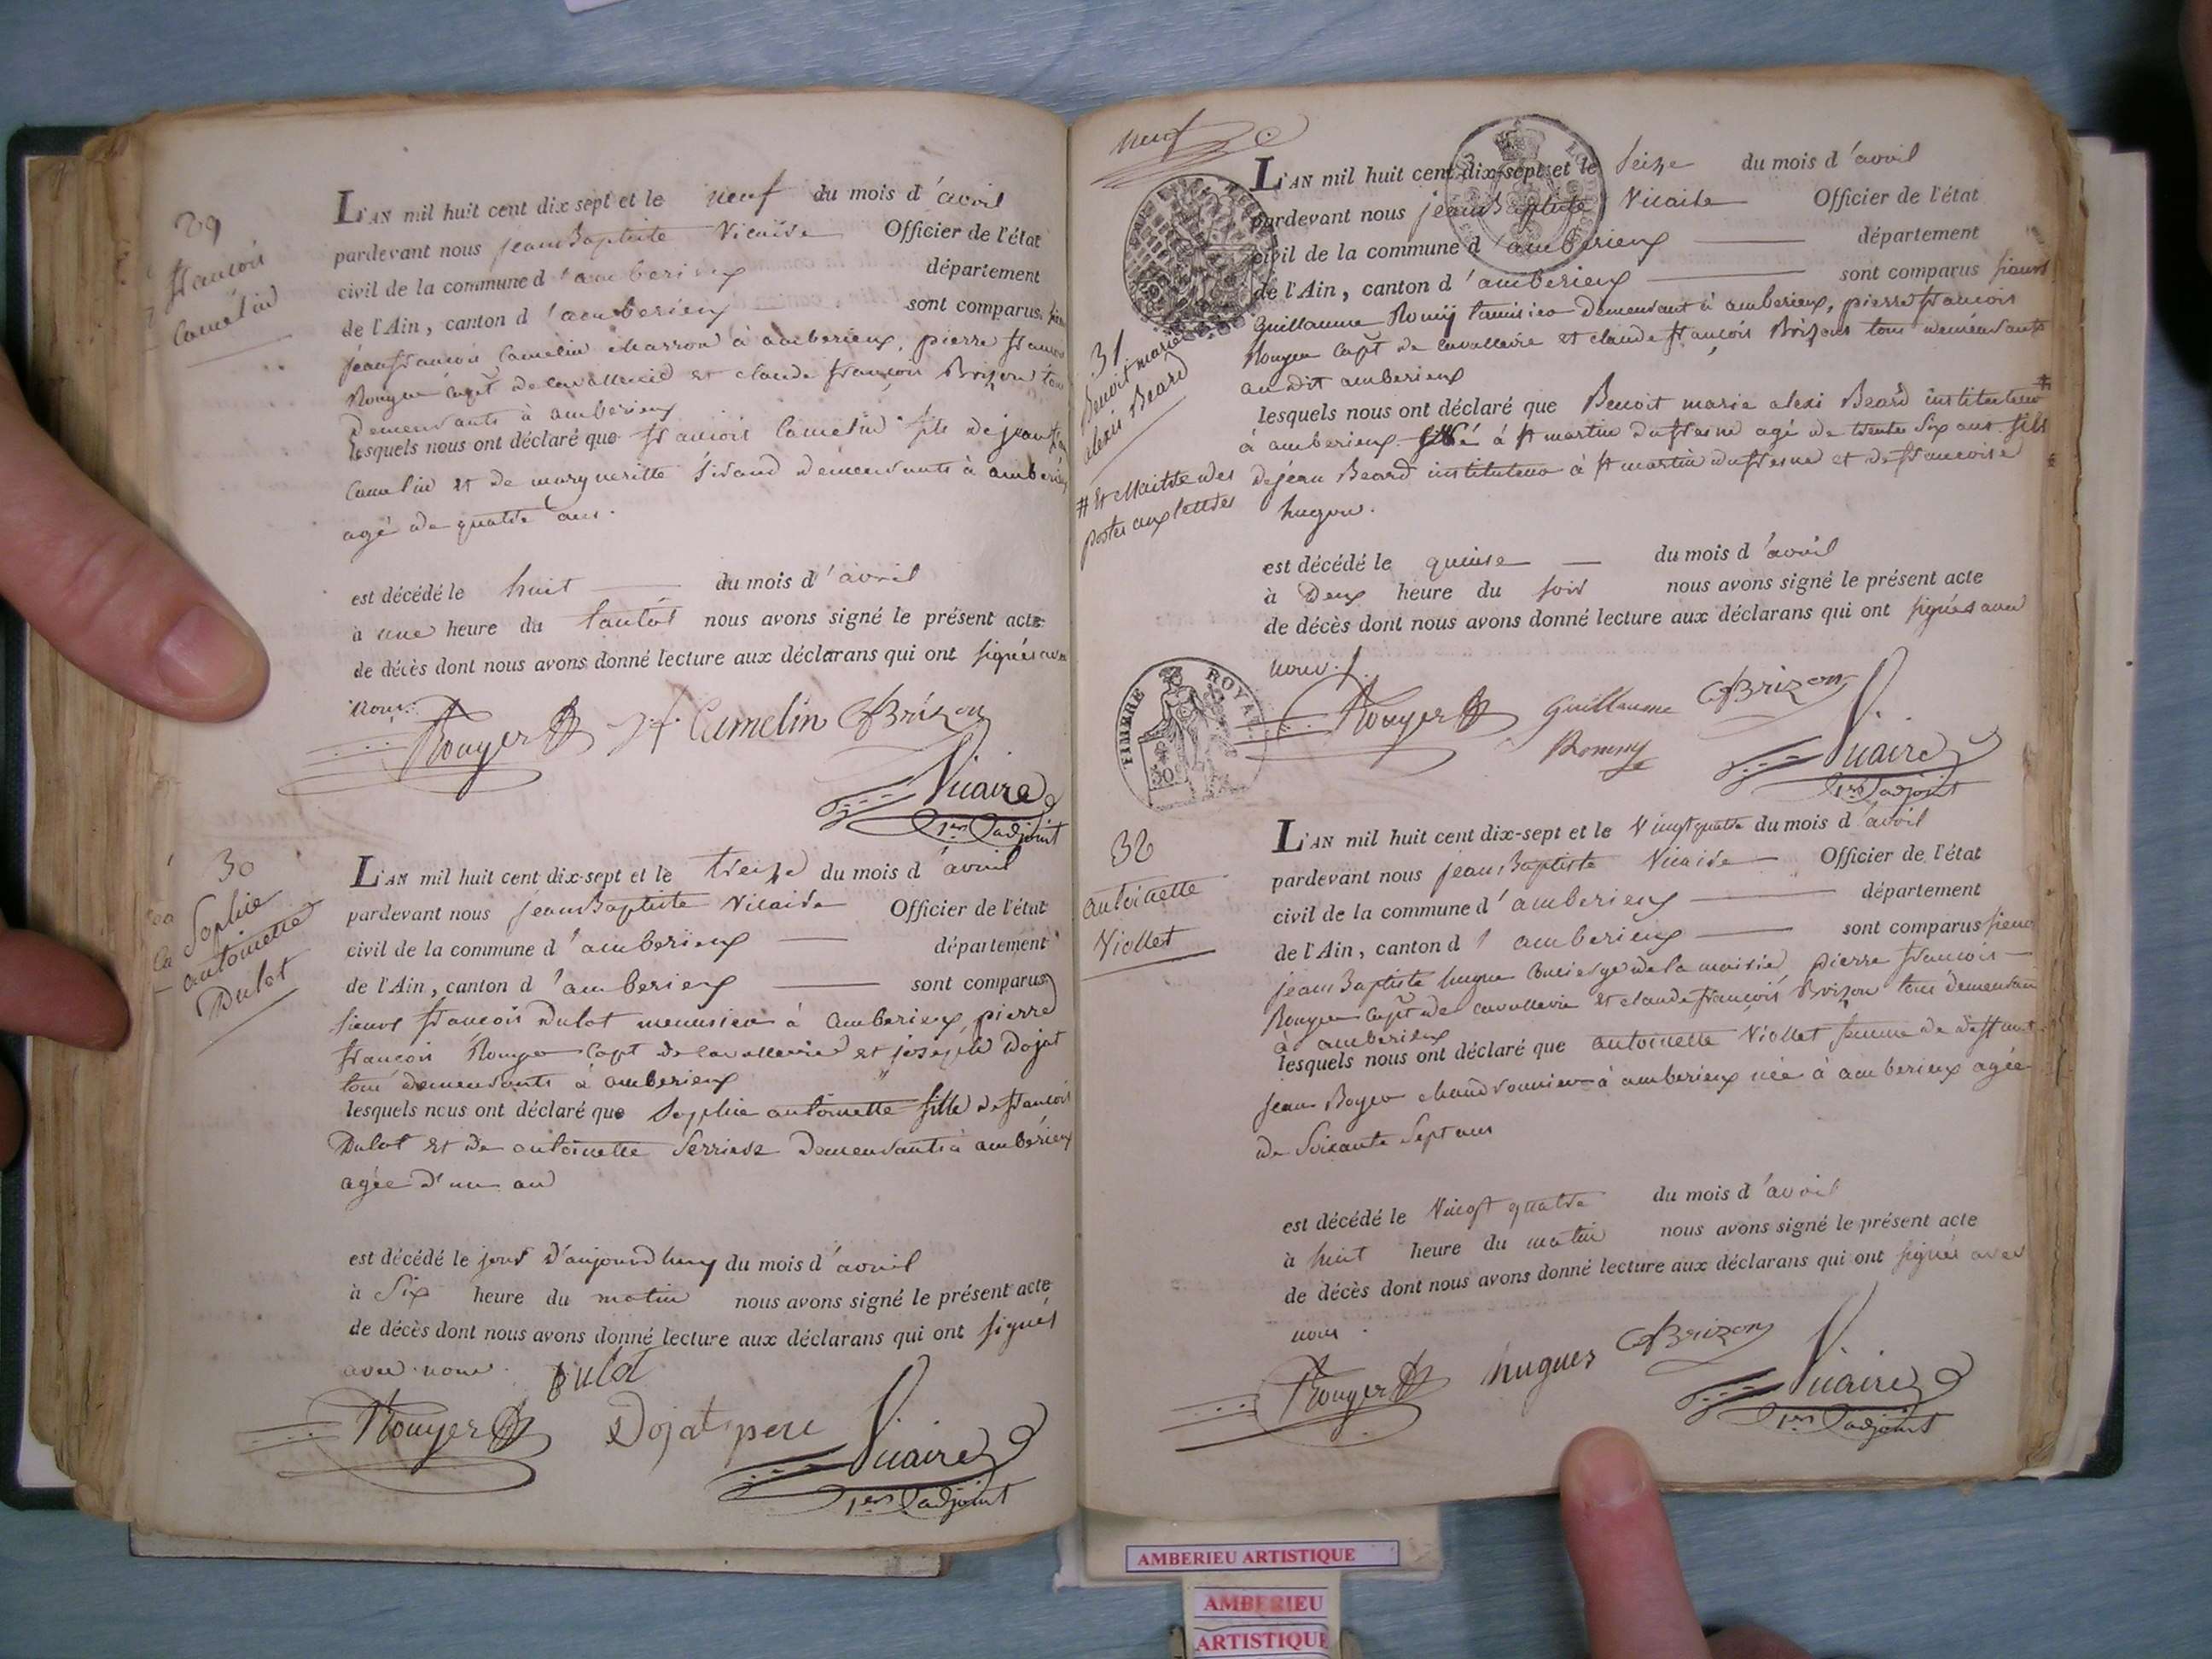 29
françois
Camelin
L'AN mil huit cent dix sept et le neuf du mois d'avril
pardevant nous jean Baptiste Vicaire Officier de l'état
civil de la commune d'amberieux département
de l'Ain, canton d'amberieux sont comparus
jean françois Camelin charron à amberieux, pierre françois
Rouyer capt de cavallerie et claude françois Brizon tous
demeurants à amberieux
lesquels nous ont déclaré que françois Camelin fils de jean
Camelin et de margueritte Sirand demeurants à amberieux
agé de quatre ans.
est décédé le huit du mois d'avril
à une heure du tantot nous avons signé le présent acte
de décès dont nous avons donné lecture aux déclarans qui ont signés avec
nous.
Rouyer Camelin Brizon
Vicaire
1er adjoint
30
Sophie
antoinette
Dulot
L'AN mil huit cent dix-sept et le treize du mois d'avril
pardevant nous jean Baptiste Vicaire Officier de l'état
civil de la commune d'amberieux département
de l'Ain, canton d'amberieux sont comparus
sieurs françois Dulot menusier à amberieux, pierre
françois Rouyer capt de cavallerie et joseph Dojat
tous demeurants à amberieux
lesquels nous ont déclaré que Sophie antoinette fille de françois
Dulot et de antoinette demeurants à amberieux
agée d'un an
est décédé le jour d'aujourdhuy du mois d'avril
à Six heure du matin nous avons signé le présent acte
de décès dont nous avons donné lecture aux déclarans qui ont signés
avec nous. Dulot
Rouyer Dojat pere Vicaire
1er adjoint
neuf
L'AN mil huit cent dix-sept et le Seize du mois d'avril
pardevant nous jean Baptiste Vicaire Officier de l'état
civil de la commune d'amberieux département
de l'Ain, canton d'amberieux sont comparus sieurs
Guillaume Romy demeurant à amberieux, pierre françois
Rouyer capt de cavallerie et claude françois Brizon tous demeurants
au dit amberieux
31
Benoit marie
alexis Beard
lesquels nous ont déclaré que Benoit marie alexi Beard instituteur #
à amberieux né à St martin du fresne agé de trente six ans fils
# Et Maitre des
postes aux lettres
de jean Beard instituteur à St martin du fresne et de francoise
hugon.
est décédé le quinse du mois d'avril
à Deux heure du soir nous avons signé le présent acte
de décès dont nous avons donné lecture aux déclarans qui ont signés avec
nous.
TIMBRE ROYAL
Rouyer Guillaume Romy Brizon
Vicaire
1er adjoint
32
antoinette
Viollet
L'AN mil huit cent dix-sept et le Vingt quatre du mois d'avril
pardevant nous jean Baptiste Vicaire Officier de l'état
civil de la commune d'amberieux département
de l'Ain, canton d'amberieux sont comparus sieurs
jean Baptiste hugue concierge de la mairie, pierre françois
Rouyer capt de cavallerie et claude françois Brizon tous demeurants
à amberieux
lesquels nous ont déclaré que antoinette Viollet femme de deffunt
jean Boyer chaudronnier à amberieux née à amberieux agée
de Soixante Sept ans
est décédé le Vingt quatre du mois d'avril
à huit heure du matin nous avons signé le présent acte
de décès dont nous avons donné lecture aux déclarans qui ont signés avec
nous.
Rouyer hugues Brizon Vicaire
1er adjoint
AMBERIEU ARTISTIQUE
AMBERIEU
ARTISTIQUE